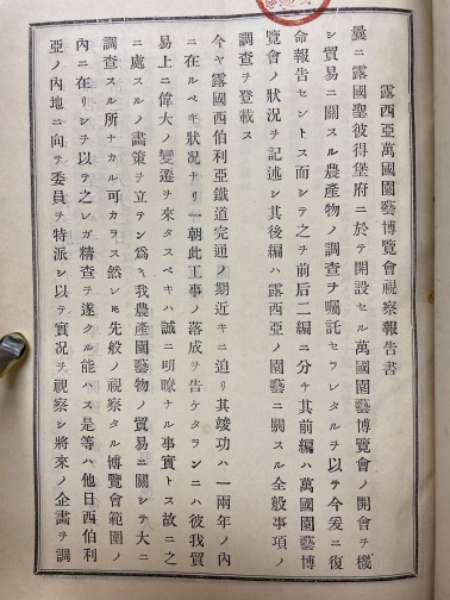 露西亞萬國園藝博覽會視察報告書
曩ニ露國聖彼得堡府ニ於テ開設セル萬國園藝博覽會ノ開會ヲ機
シ貿易ニ關スル農產物ノ調査ヲ囑託セラレタルヲ以テ今爰ニ復
命報告セントス而シテ之ヲ前后二編ニ分チ其前編ハ萬國園藝博
覽會ノ狀況ヲ記述シ其後編ハ露西亞ノ園藝ニ關スル全般事項ノ
調査ヲ登載ス
今ヤ露國西伯利亞鐵道完通ノ期近キニ迫リ其竣功ハ一兩年ノ內
ニ在ルベキ狀況ナリ一朝此工事ノ落成ヲ告ケタランニハ彼我貿
易上ニ偉大ノ變遷ヲ來タスベキハ誠ニ明瞭ナル事實トス故ニ之
ニ處スルノ畫策ヲ立テン爲メ我農產園藝物ノ貿易ニ關シテ大ニ
調査スル所ナカル可カラス然シ𪜈先般ノ視察タル博覽會範圍ノ
內ニ在リシヲ以テ之レガ精查ヲ遂クル能ハス是等ハ他日西伯利
亞ノ內地ニ向テ委員ヲ特派シ以テ實況ヲ視察シ將來ノ企畫ヲ調